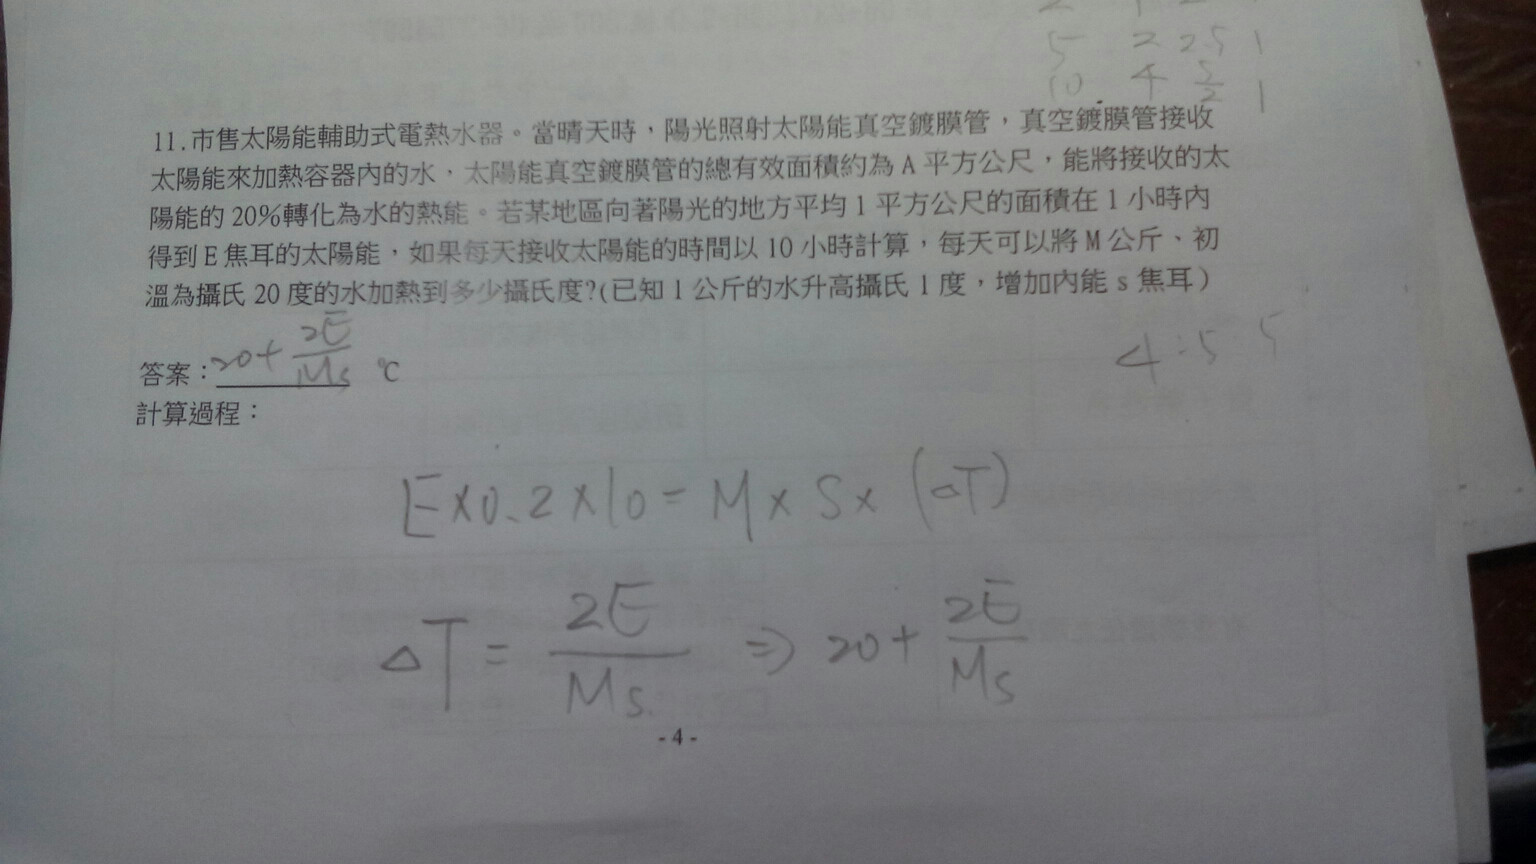 5 2 2.5 1
10 4 5/2 1
11.市售太陽能輔助式電熱水器。當晴天時，陽光照射太陽能真空鍍膜管，真空鍍膜管接收
太陽能來加熱容器內的水，太陽能真空鍍膜管的總有效面積約為 A 平方公尺，能將接收的太
陽能的 20%轉化為水的熱能。若某地區向著陽光的地方平均 1 平方公尺的面積在 1 小時內
得到 E 焦耳的太陽能，如果每天接收太陽能的時間以 10 小時計算，每天可以將 M 公斤、初
溫為攝氏 20 度的水加熱到多少攝氏度?(已知 1 公斤的水升高攝氏 1 度，增加內能 s 焦耳)
4:5 5
答案：20+ 2E/Ms ℃
計算過程：
E×0.2×10=M×S×(△T)
△T= 2E/Ms ⇒ 20+ 2E/Ms
-4-